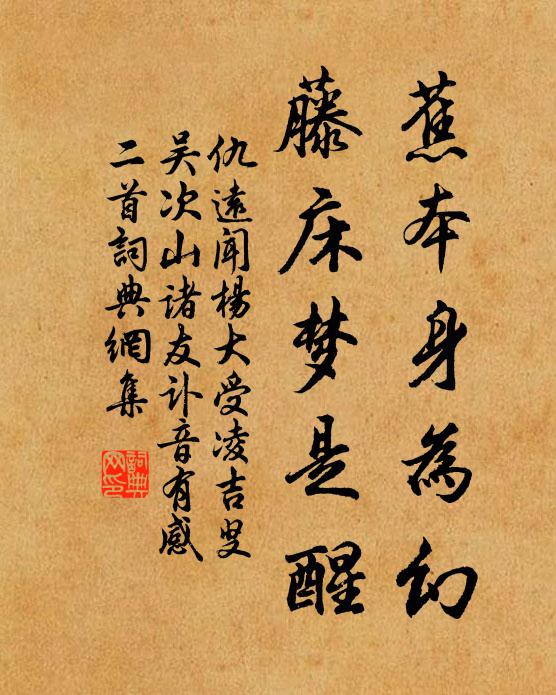 蕉本身為幻
藤床梦是醒
仇遠聞楊大受凌吉叟
吴次山诸友訃音有感
二首詞典網集
詞典網印